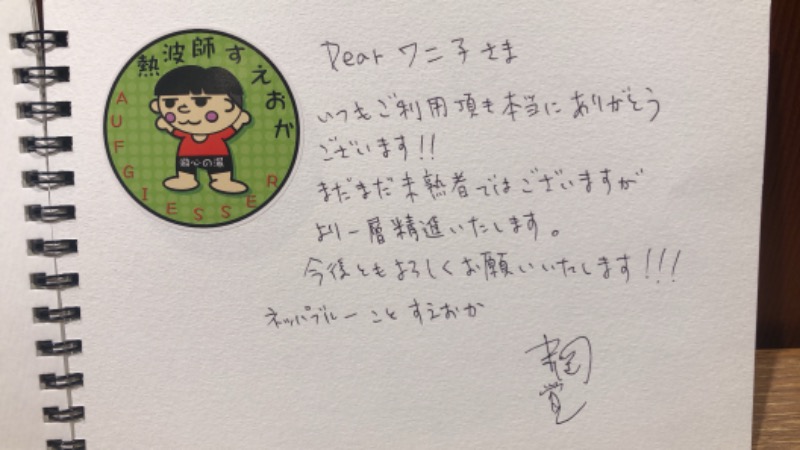 熱波師すえおか
AUFGIESSER
Dear ワニ子さま
いつもご利用頂き本当にありがとう
ございます!!
まだまだ未熟者ではございますが
より一層精進いたします。
今後ともよろしくお願いいたします!!!
ネッパブルーことすえおか